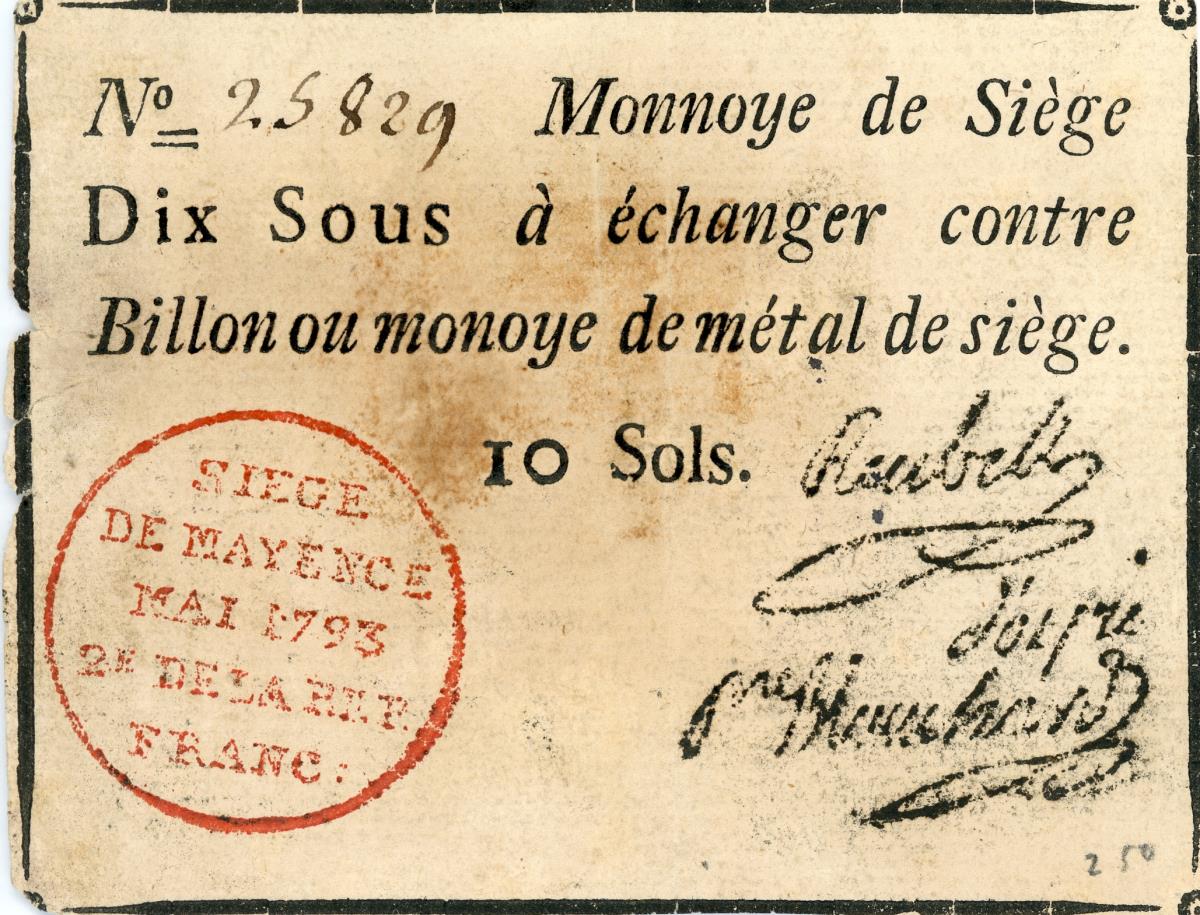 No 25829 Monnoye de Siège
Dix Sous à échanger contre
Billon ou monoye de métal de siège.
10 Sols.
Reubell
SIEGE
DE MAYENCE
MAI 1793
2E DE LA REP.
FRANC:
250